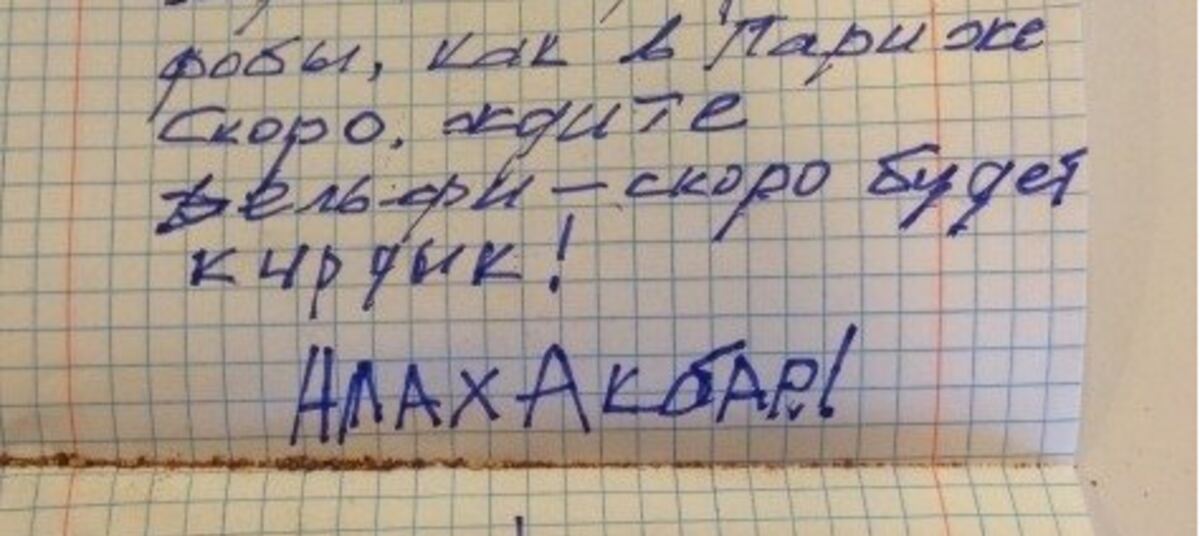 робы, как в Париже
скоро. ждите
вельфи — скоро будет
кирдык!
АЛАХ АкбАР!